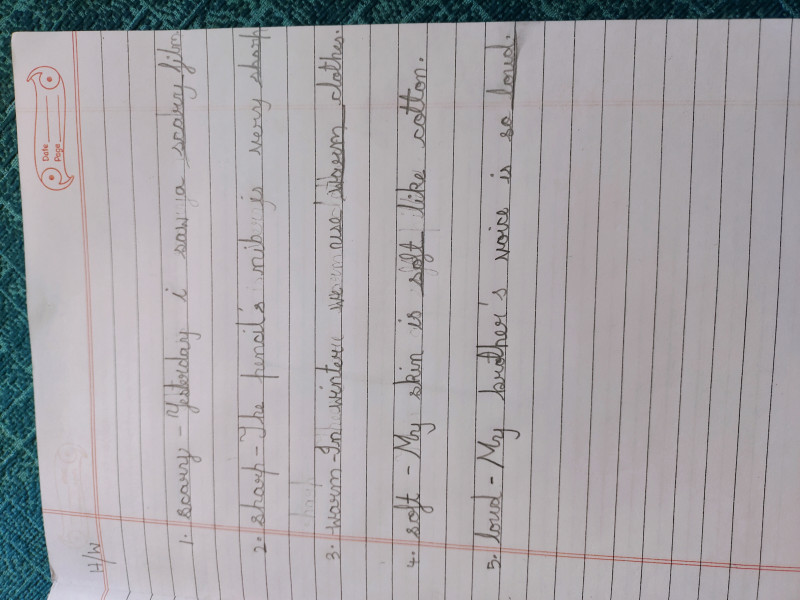 Date
Page
H/W
1. scarry - Yesterday i saw a scarry film
2. sharp - The pencil's nib is very sharp
3. warm - In winter we use warm clothes.
4. soft - My skin is soft like cotton.
5. loud - My brother's voice is so loud.